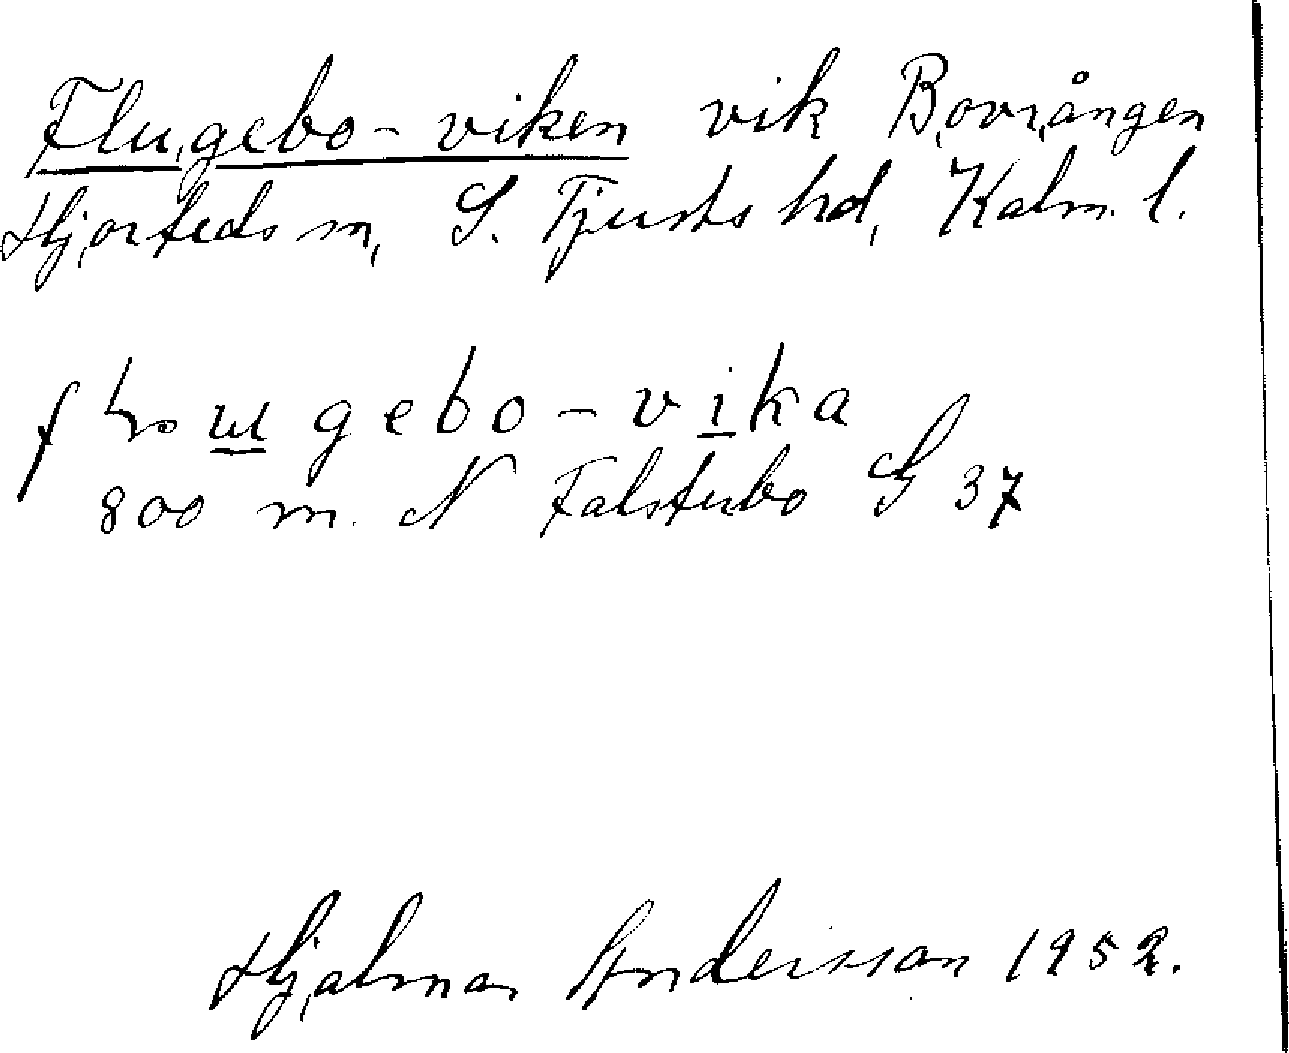 Flugebo-viken vik Bovrången
Hjorteds sn, S. Tjusts hd, Kalm. l.
gebo-vika
800 m. N Falstubo G 37
Hjalmar Andersson 1952.